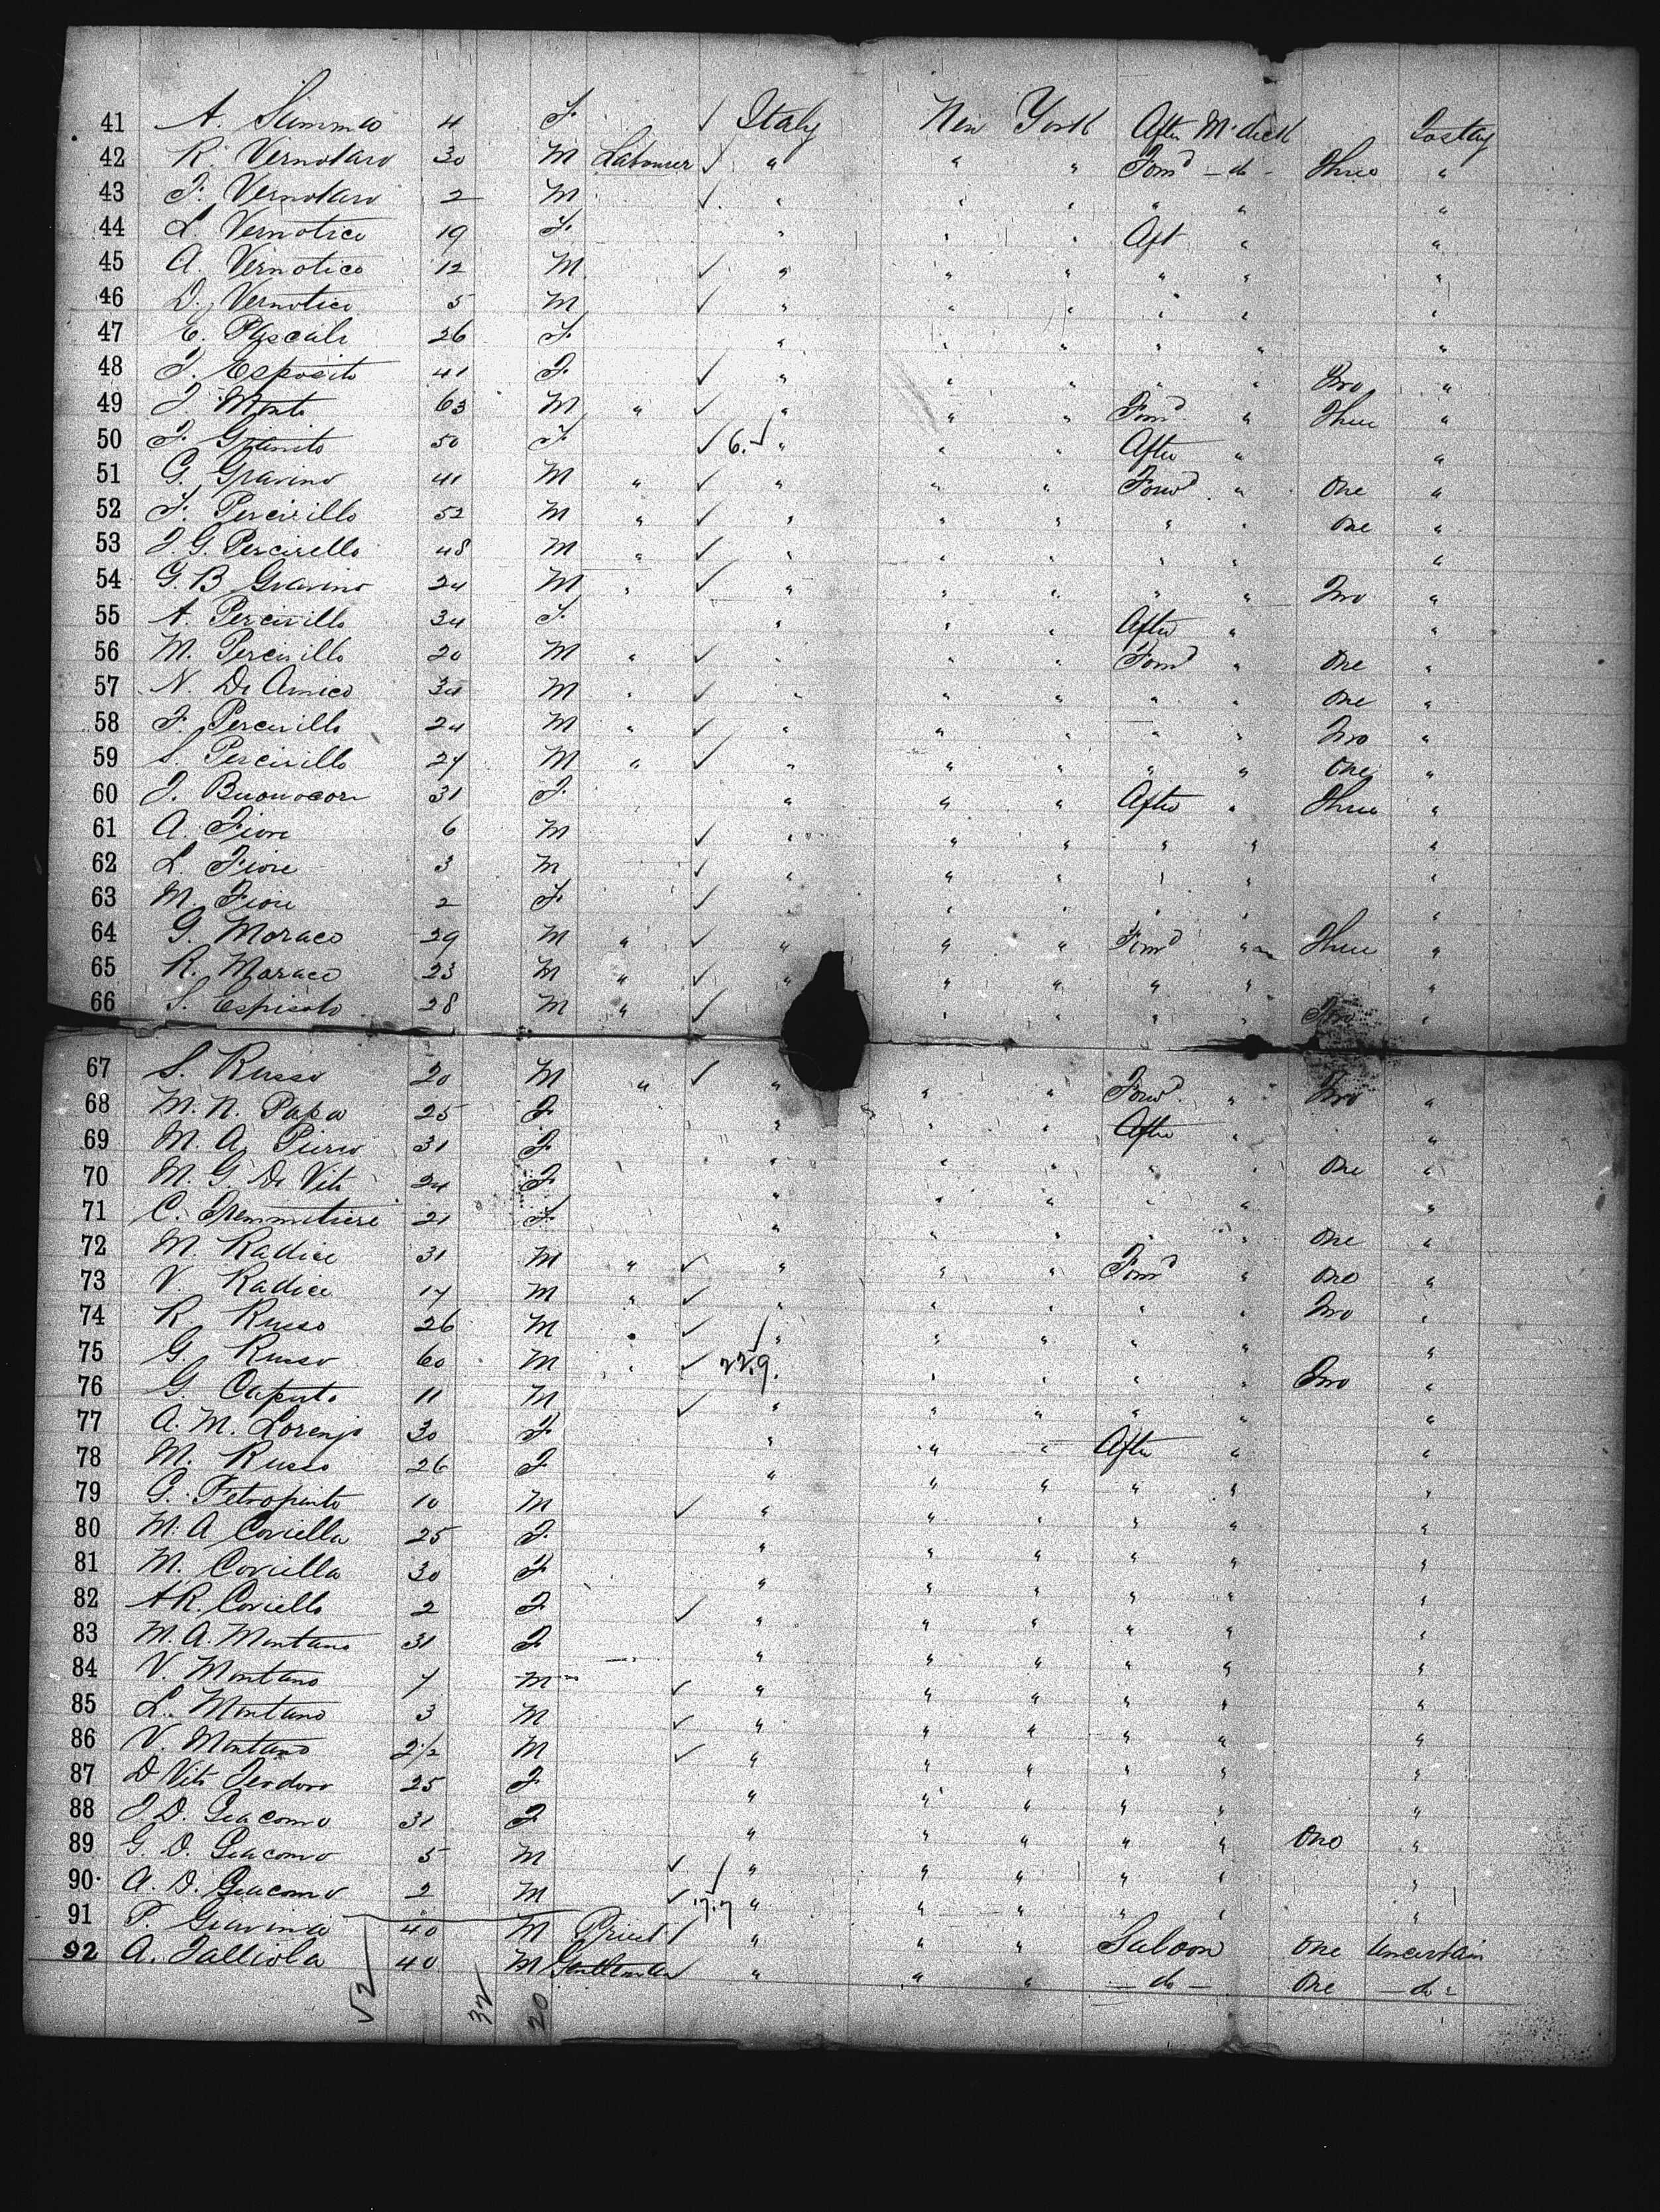 41 A. Summa 4 F. ✓ Italy New York After M. deck To stay
42 R. Vernotaro 30 M Labourer ✓ " " " Forwd - do - Three "
43 F. Vernotaro 2 M ✓ " " " " " "
44 L. Vernotico 19 F. " " " Aft " "
45 A. Vernotico 12 M ✓ " " " " " "
46 D. Vernotico 5 M ✓ " " " " " "
47 E. Pascale 26 F. " " " " " "
48 F. Esposito 41 F. ✓ " " " " " Two "
49 F. Monto 63 M " ✓ " " " Forwd " Three "
50 F. Granito 50 F ✓ 6. ✓ " " " After " "
51 G. Gravino 41 M " ✓ " " " Forwd " One "
52 F. Percivillo 52 M " ✓ " " " " " One "
53 F. G. Percivello 48 M " ✓ " " " " " "
54 G. B Gravino 24 M " ✓ " " " " " Two "
55 A. Percivillo 34 F. " " " After " "
56 M. Percivillo 20 M " ✓ " " " Forwd " One "
57 N. De Amico 34 M " ✓ " " " " " One "
58 F. Percivillo 24 M " ✓ " " " " " Two "
59 S. Percivillo 27 M " ✓ " " " " " One "
60 F. Buonocore 31 F. " " " After " Three "
61 A. Fiore 6 M ✓ " " " " " "
62 L. Fiore 3 M ✓ " " " " " "
63 M. Fiore 2 F. ✓ " " " " "
64 G. Moraco 29 M " ✓ " " " Forwd " Three "
65 R. Moraco 23 M " ✓ " " " " " "
66 S. Espisoto 28 M " ✓ " " " " Two "
67 S. Russo 20 M " ✓ " " " Forwd " Two "
68 M. N. Papa 25 F. " " " After " "
69 M. A. Pierro 31 F. " " " " " One "
70 M. G. De Vito 24 F. " " " " " "
71 C. 21 F. " " " " " One "
72 M. Radice 31 M " ✓ " " " Forwd " One "
73 V. Radice 17 M " ✓ " " " " " Two "
74 R. Russo 26 M " ✓ ✓ " " " " " "
75 G. Russo 60 M " ✓ 229. " " " " Two "
76 G. Caputo 11 M ✓ " " " " " "
77 A. M. Lorenzo 30 F. " " " After " "
78 M. Russo 26 F. " " " " " "
79 G. Petropinto 10 M ✓ " " " " " "
80 M. A Coviella 25 F. " " " " " "
81 M. Coviella 30 F. " " " " " "
82 A R. Coviello 2 F. ✓ " " " " " "
83 M. A. Montano 31 F. " " " " " "
84 V. Montano 7 M ✓ " " " " " "
85 L. Montano 3 M ✓ " " " " " "
86 V. Montano 2½ M ✓ " " " " " "
87 D Vito Teodoro 25 F. " " " " " "
88 F. D. Giacomo 31 F. " " " " " One "
89 G. D. Giacomo 5 M ✓ " " " " " "
90 A. D. Giacomo 2 M ✓ 17.7 " " " " " "
91 P. Gravina 40 M Priest ✓ " " " Saloon One Uncertain
92 A. Talliola 40 M Gentleman ✓ " " " - do - One - do -
52 32 20